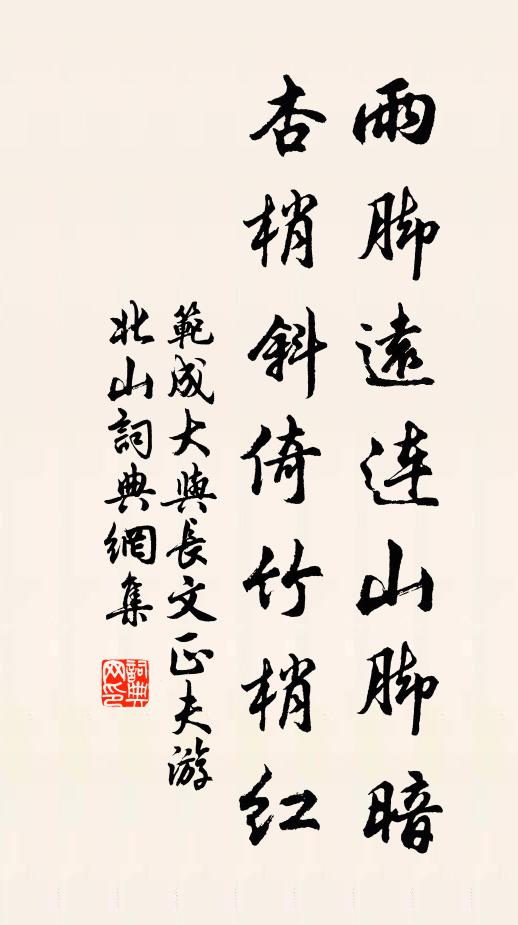 雨脚遠连山脚暗
杏梢斜倚竹梢红
範成大與長文正夫游
北山詞典網集
詞典网印